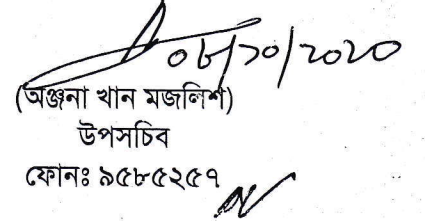 ০৮/১০/২০২০
(অঞ্জনা খান মজলিশ)
উপসচিব
ফোনঃ ৯৫৮৫২৫৭